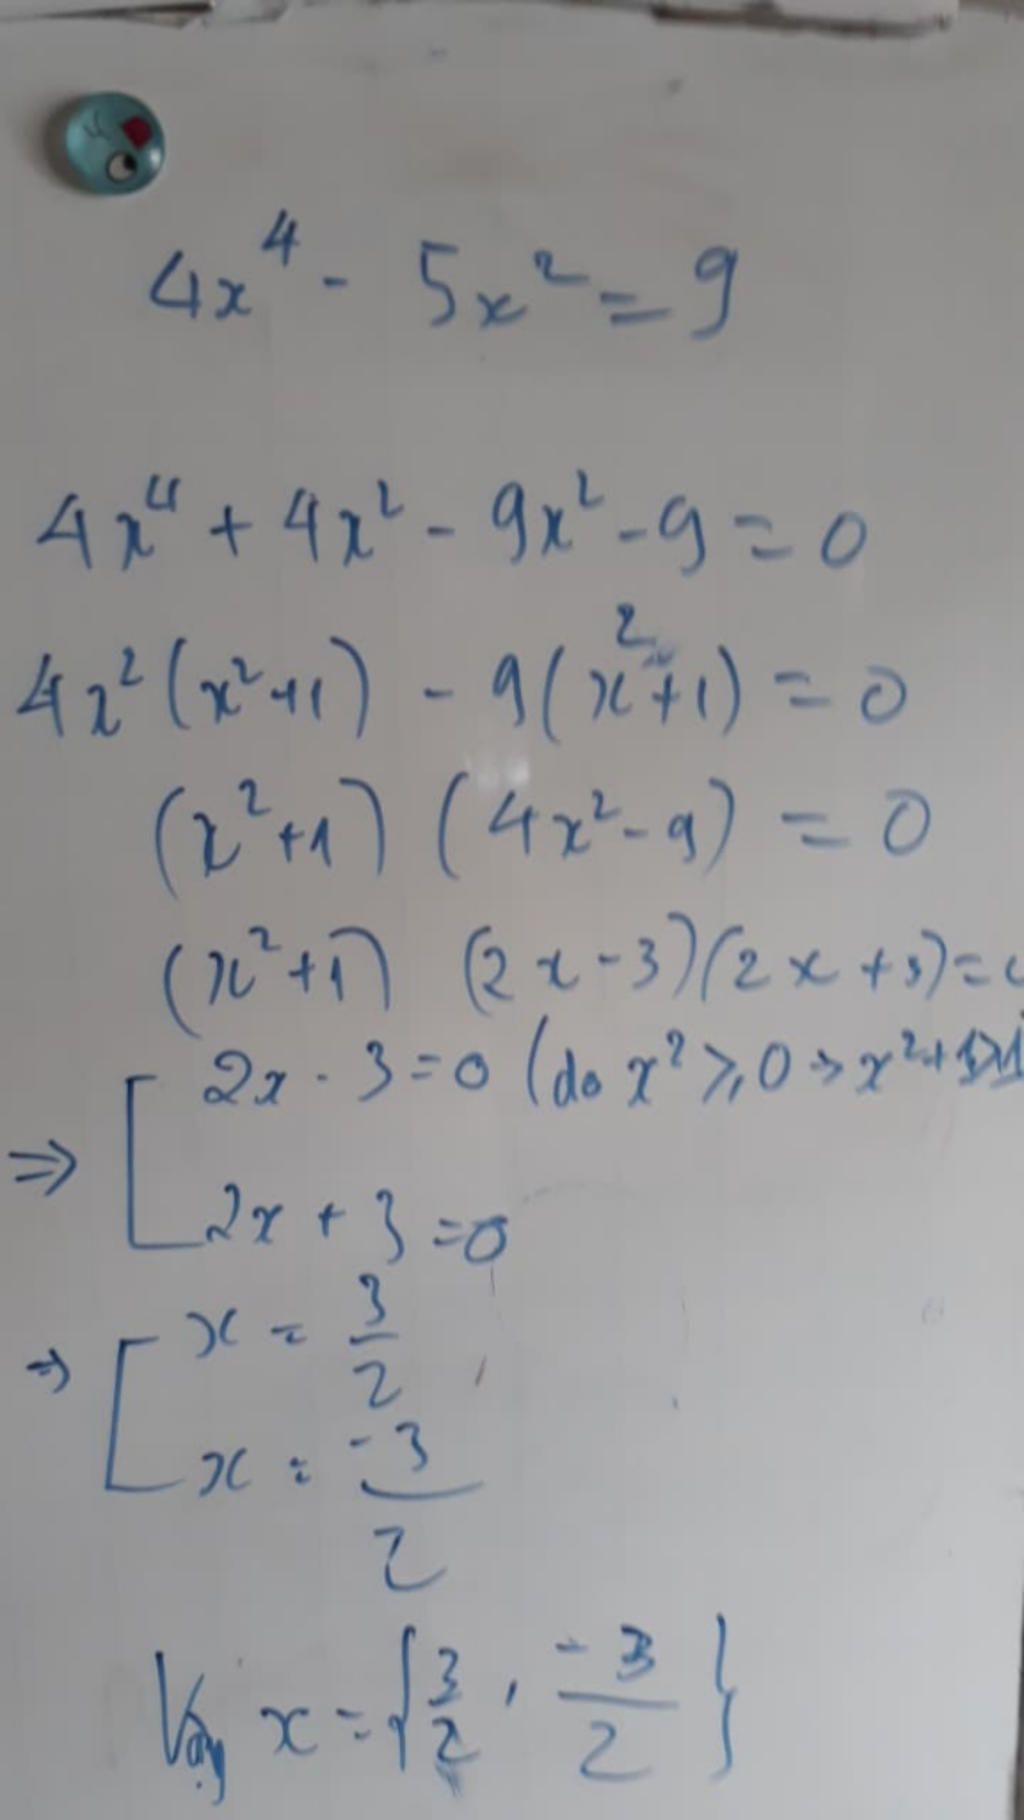 4x⁴ - 5x² = 9
4x⁴ + 4x² - 9x² - 9 = 0
4x²(x²+1) - 9(x²+1) = 0
(x²+1) (4x²-9) = 0
(x²+1) (2x-3)(2x+3)=
⇒ [ 2x - 3 = 0 (do x² ⩾ 0 → x²+1⩾1
2x + 3 = 0
⇒ [ x = 3/2
x = -3/2
Vậy x = {3/2, -3/2}